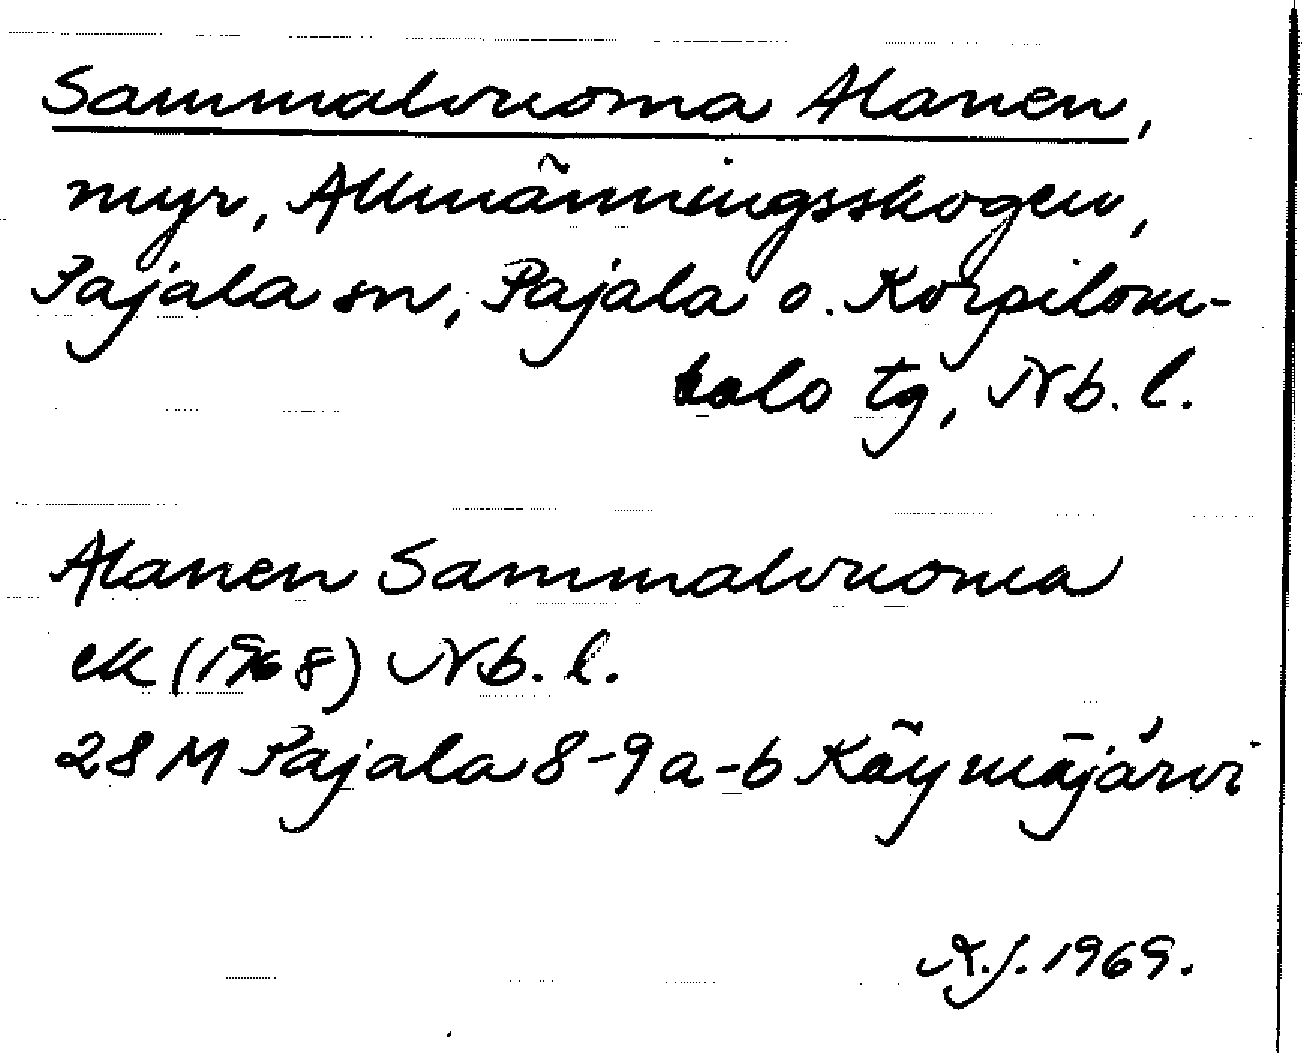 Sammalvuoma Alanen,
myr, Allmänningsskogen,
Pajala sn, Pajala o. Korpilom-
bolo tg, Nb. l.
Alanen Sammalvuoma
ek (1968) Nb. l.
28 M Pajala 8-9 a-b Käymäjärvi
N.J. 1969.